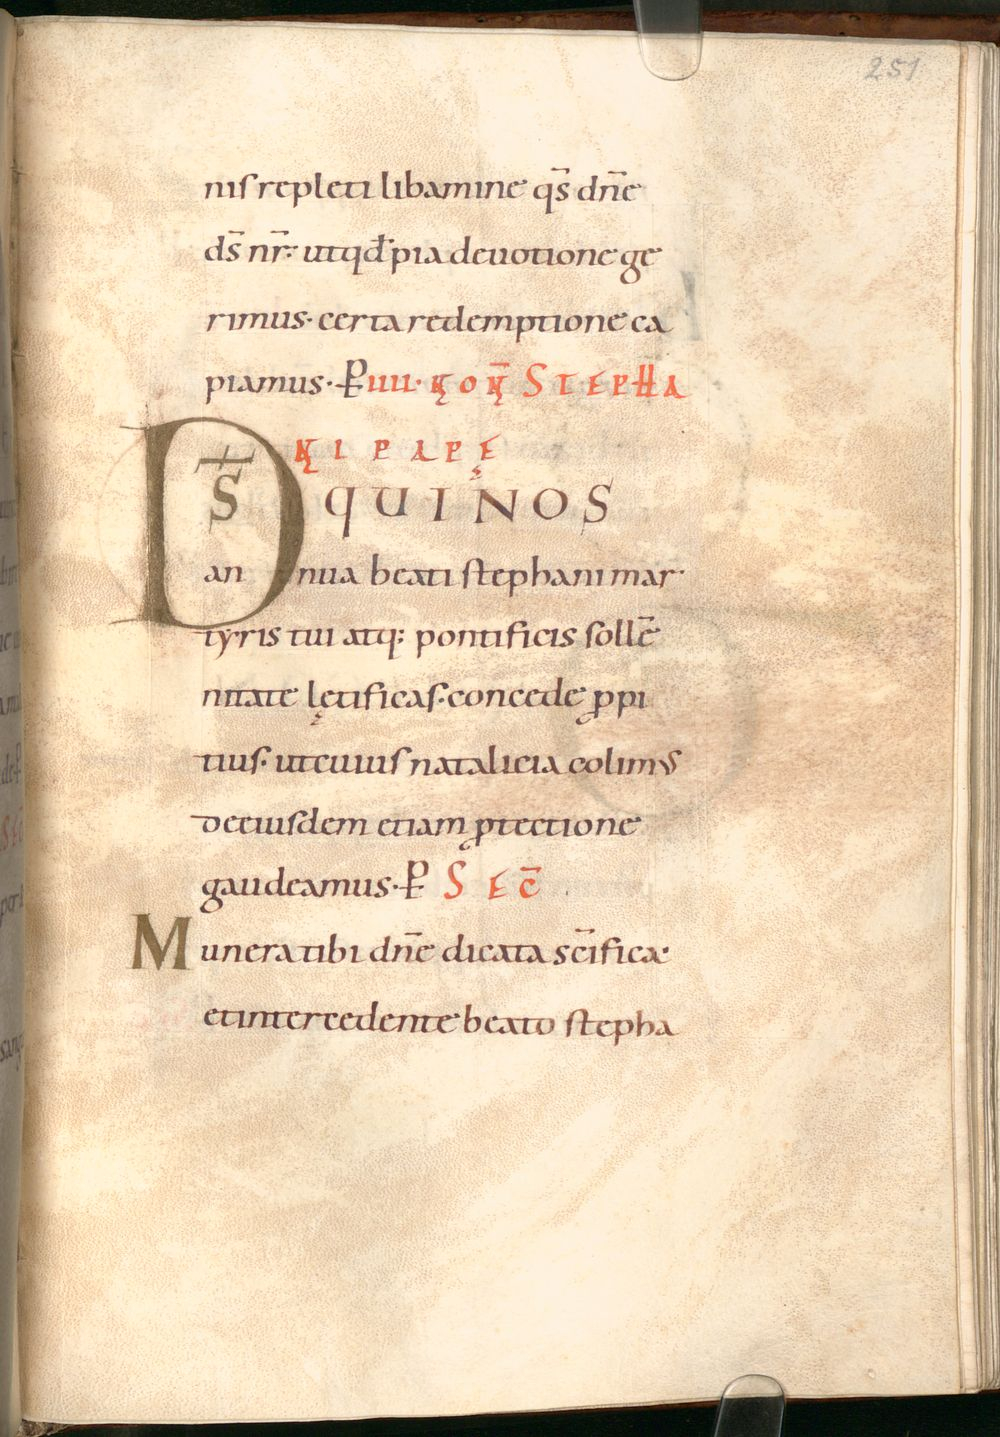 251
nis repleti libamine qs̄ dn̄e
ds̄ nr̄: ut qđ pia deuotione ge
rimus· certa redemptione ca
piamus· P̵ IIII· NON̄ STEPHA
NI PAPĘ
DS̄ QUI NOS
annua beati stephani mar
tyris tui atq: pontificis sollē
nitate lętificas· concede ꝓpi
tius· ut cuius natalicia colimus
de eiusdem etiam ꝓtectione
gaudeamus· P̵ SEC̄
Munera tibi dn̄e dicata sc̄ifica·
et intercedente beato stepha